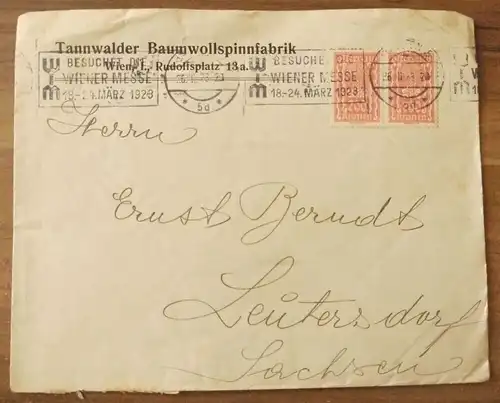 Tannwalder Baumwollspinnfabrik
Wien, I., Rudolfsplatz 13a.
BESUCHET DIE
WIENER MESSE
18.-24. MÄRZ 1923
BESUCHE
WIENER MESSE
18.-24. MÄRZ 1923
Kronen
Kronen
Herrn
Ernst Berndt
Leutersdorf
Sachsen